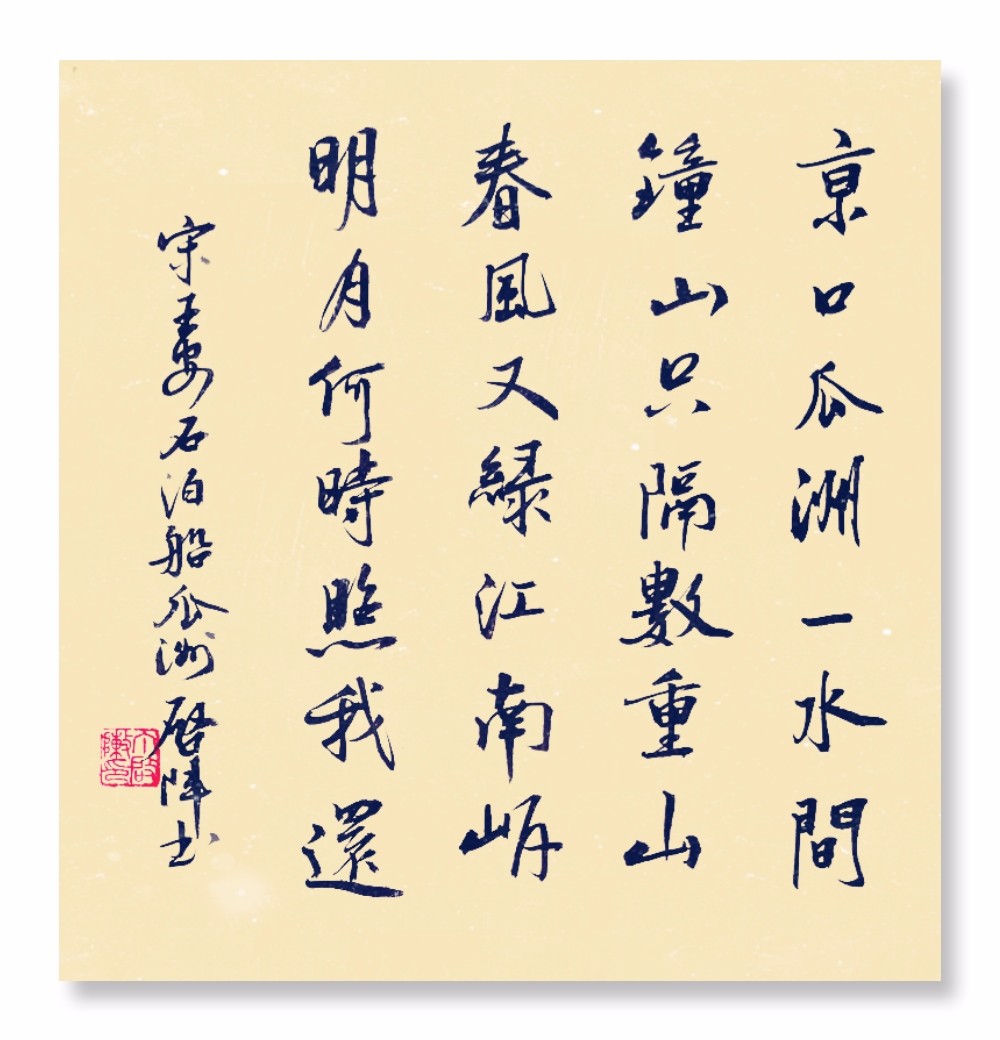 亰口瓜洲一水間
鐘山只隔數重山
春風又緑江南岸
明月何時照我還
宋王安石泊船瓜洲 啓陣书